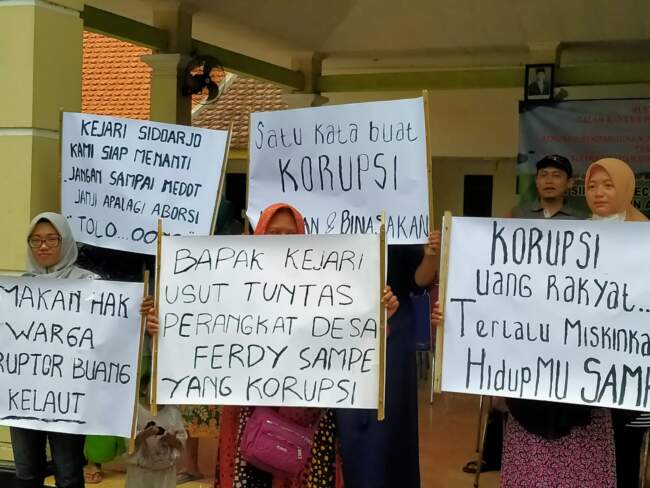 KEJARI SIDDARJO
KAMI SIAP MENANTI
JANGAN SAMPAI MEDOT
JANJI APALAGI ABORSI
"TOLO...OO
Satu kata buat
KORUPSI
& BINASAKAN
MAKAN HAK
WARGA
RUPTOR BUANG
KELAUT
BAPAK KEJARI
USUT TUNTAS
PERANGKAT DESA
FERDY SAMPE
YANG KORUPSI
KORUPSI
UANG RAKYAT..
TERLALU MISKINKA
HIDUPMU SAMP